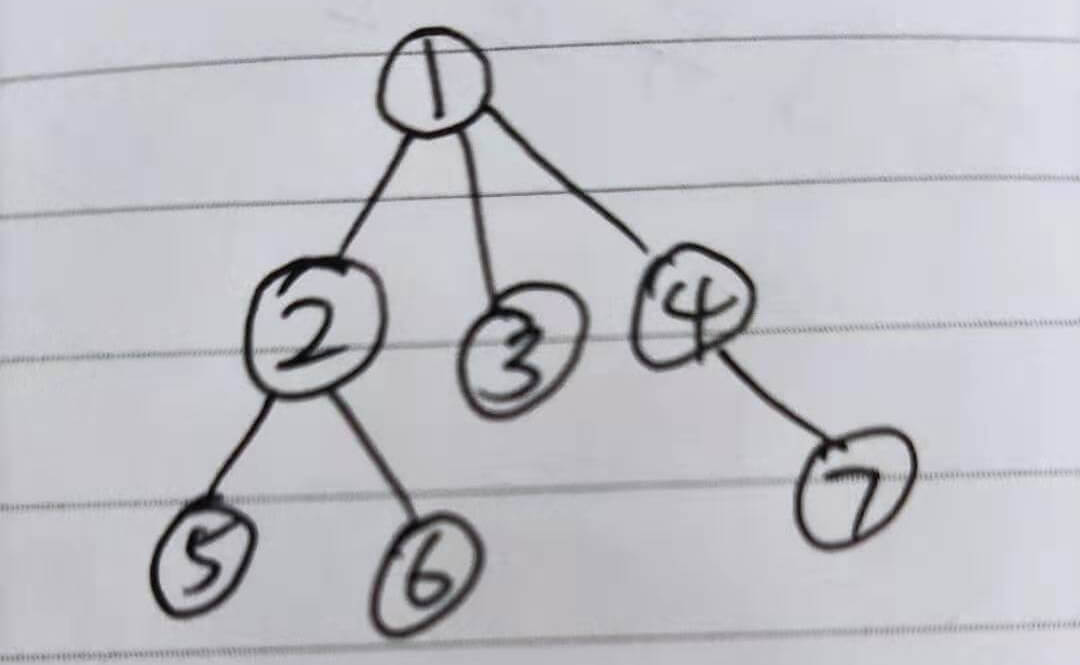 1
2 3 4
5 6 7